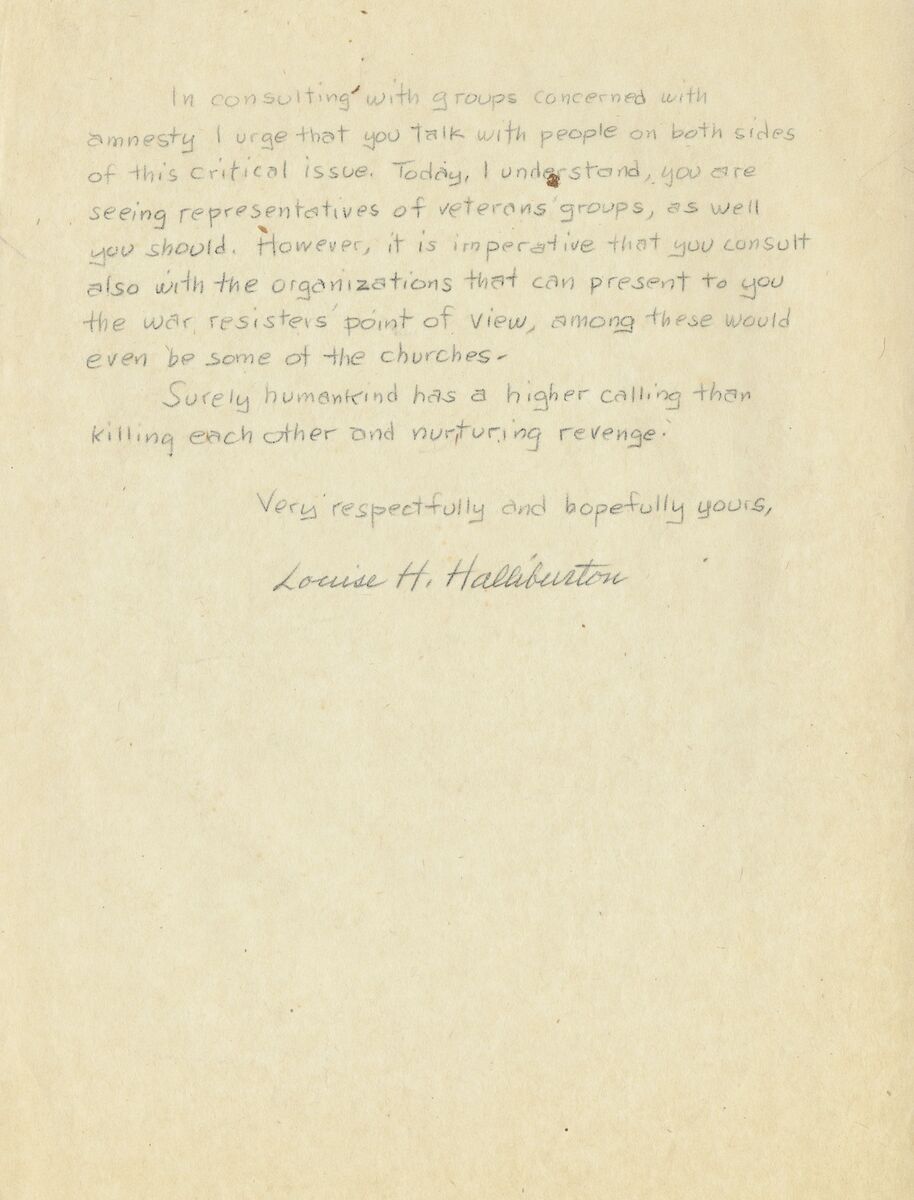 In consulting with groups concerned with
amnesty I urge that you talk with people on both sides
of this critical issue. Today, I understand, you are
seeing representatives of veterans' groups, as well
you should. However, it is imperative that you consult
also with the organizations that can present to you
the war resisters' point of view, among these would
even be some of the churches.
Surely humankind has a higher calling than
killing each other and nurturing revenge.
Very respectfully and hopefully yours,
Louise H. Halliburton